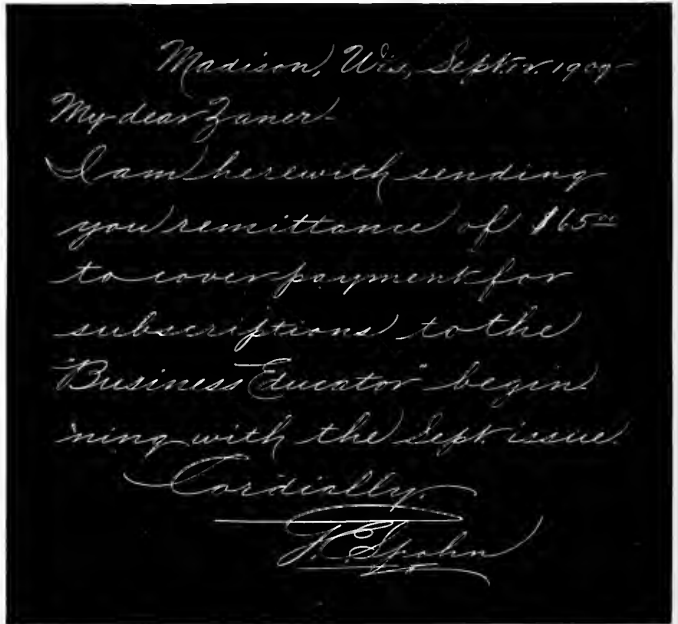 Madison, Wis, Sept. 12, 1909
My dear Zaner-
I am herewith sending
you remittance of $165.00
to cover payment for
subscriptions to the
"Business Educator" begin-
ning with the Sept issue.
Cordially,
Spohn